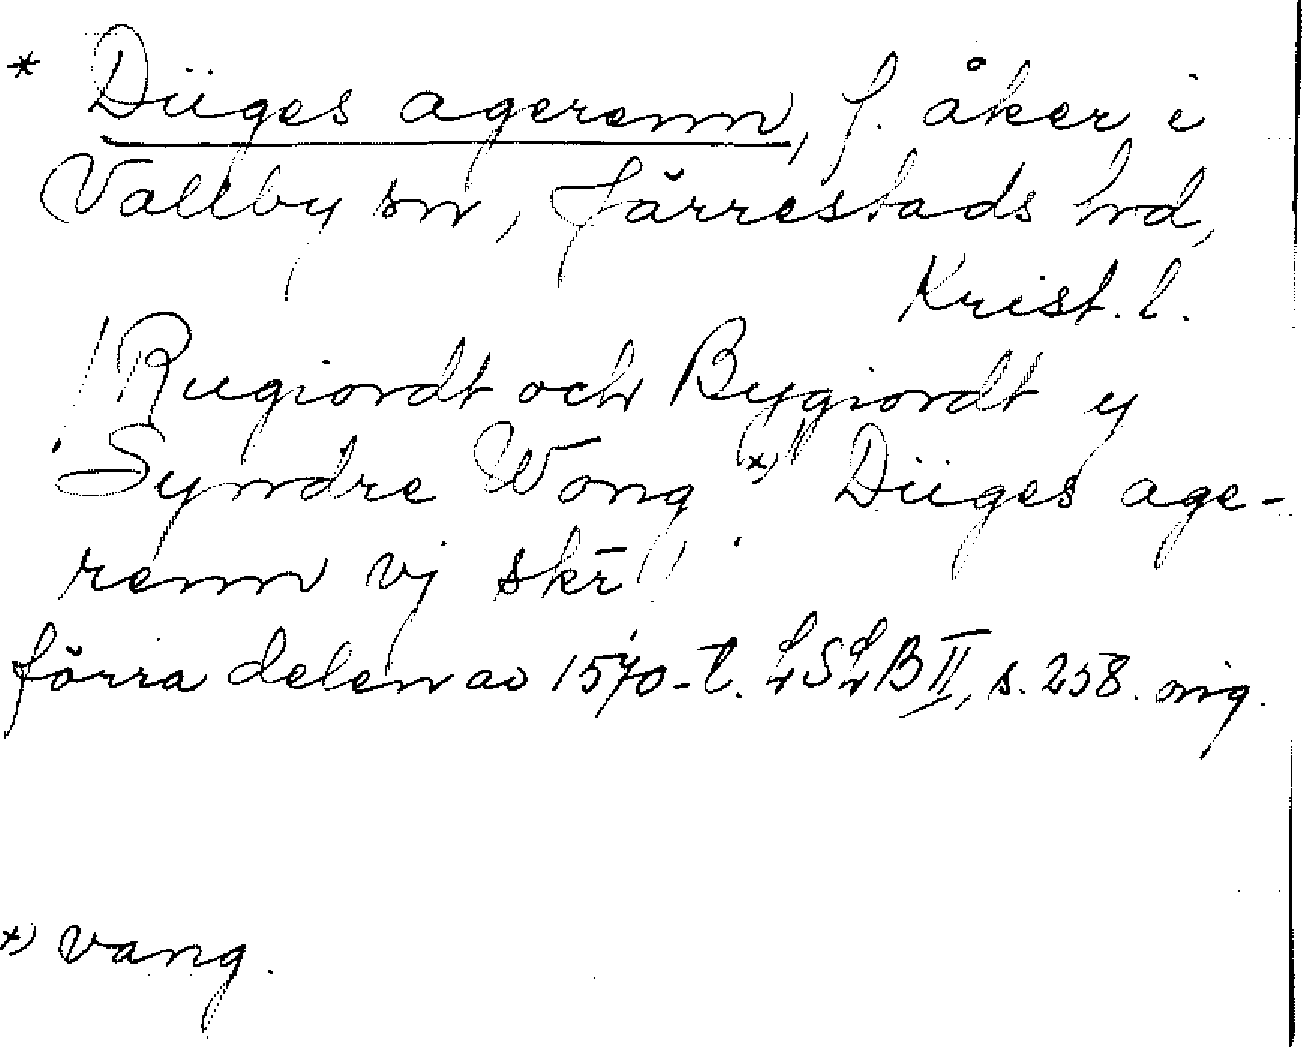 * Düges agerenn, f. åker i
Vallby sn, Järrestads hd,
Krist. l.
! Rugiordt och Bygiordt y
Syndre Wong *) Düges age-
renn vj skr̄ !
förra delen av 1570-t. LSLB II, s. 258. orig.
*) vang.